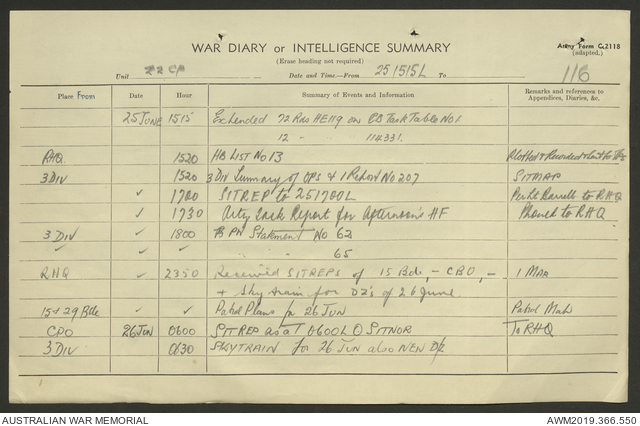 WAR DIARY or INTELLIGENCE SUMMARY
Army Form C.2118
(adapted.)
(Erase heading not required)
Unit
Date and Time—From 25/5/5L To
116
Place From Date Hour Summary of Events and Information Remarks and references to
Appendices, Diaries, &c.
25 June 1515 Expended 72 Rds HE119 on Task Table No 1
12 " 114331.
RHQ 1520 HB LIST No 13 Plotted & Recorded &
3 DIV 1520 3 Div Summary of OPS & I Report No 207 SITMAP
✓ 1700 SITREP to 251700L to RHQ
✓ 1730 Arty Task Report for Afternoon's HF Phoned to RHQ
3 DIV ✓ 1800 PW Statement No 62
✓ ✓ " " 65
RHQ ✓ 2350 Received SITREPS of 15 Bde, - CBO, - 1 Map
+ Sky train for DZ's of 26 June
15 & 29 Bde ✓ ✓ Patrol Plans for 26 JUN Patrol
CPO 26 Jun 0600 SITREP as at 0600L O SITNOR To RHQ
3 DIV 0630 SKYTRAIN for 26 JUN also NEW
AUSTRALIAN WAR MEMORIAL
AWM2019.366.550